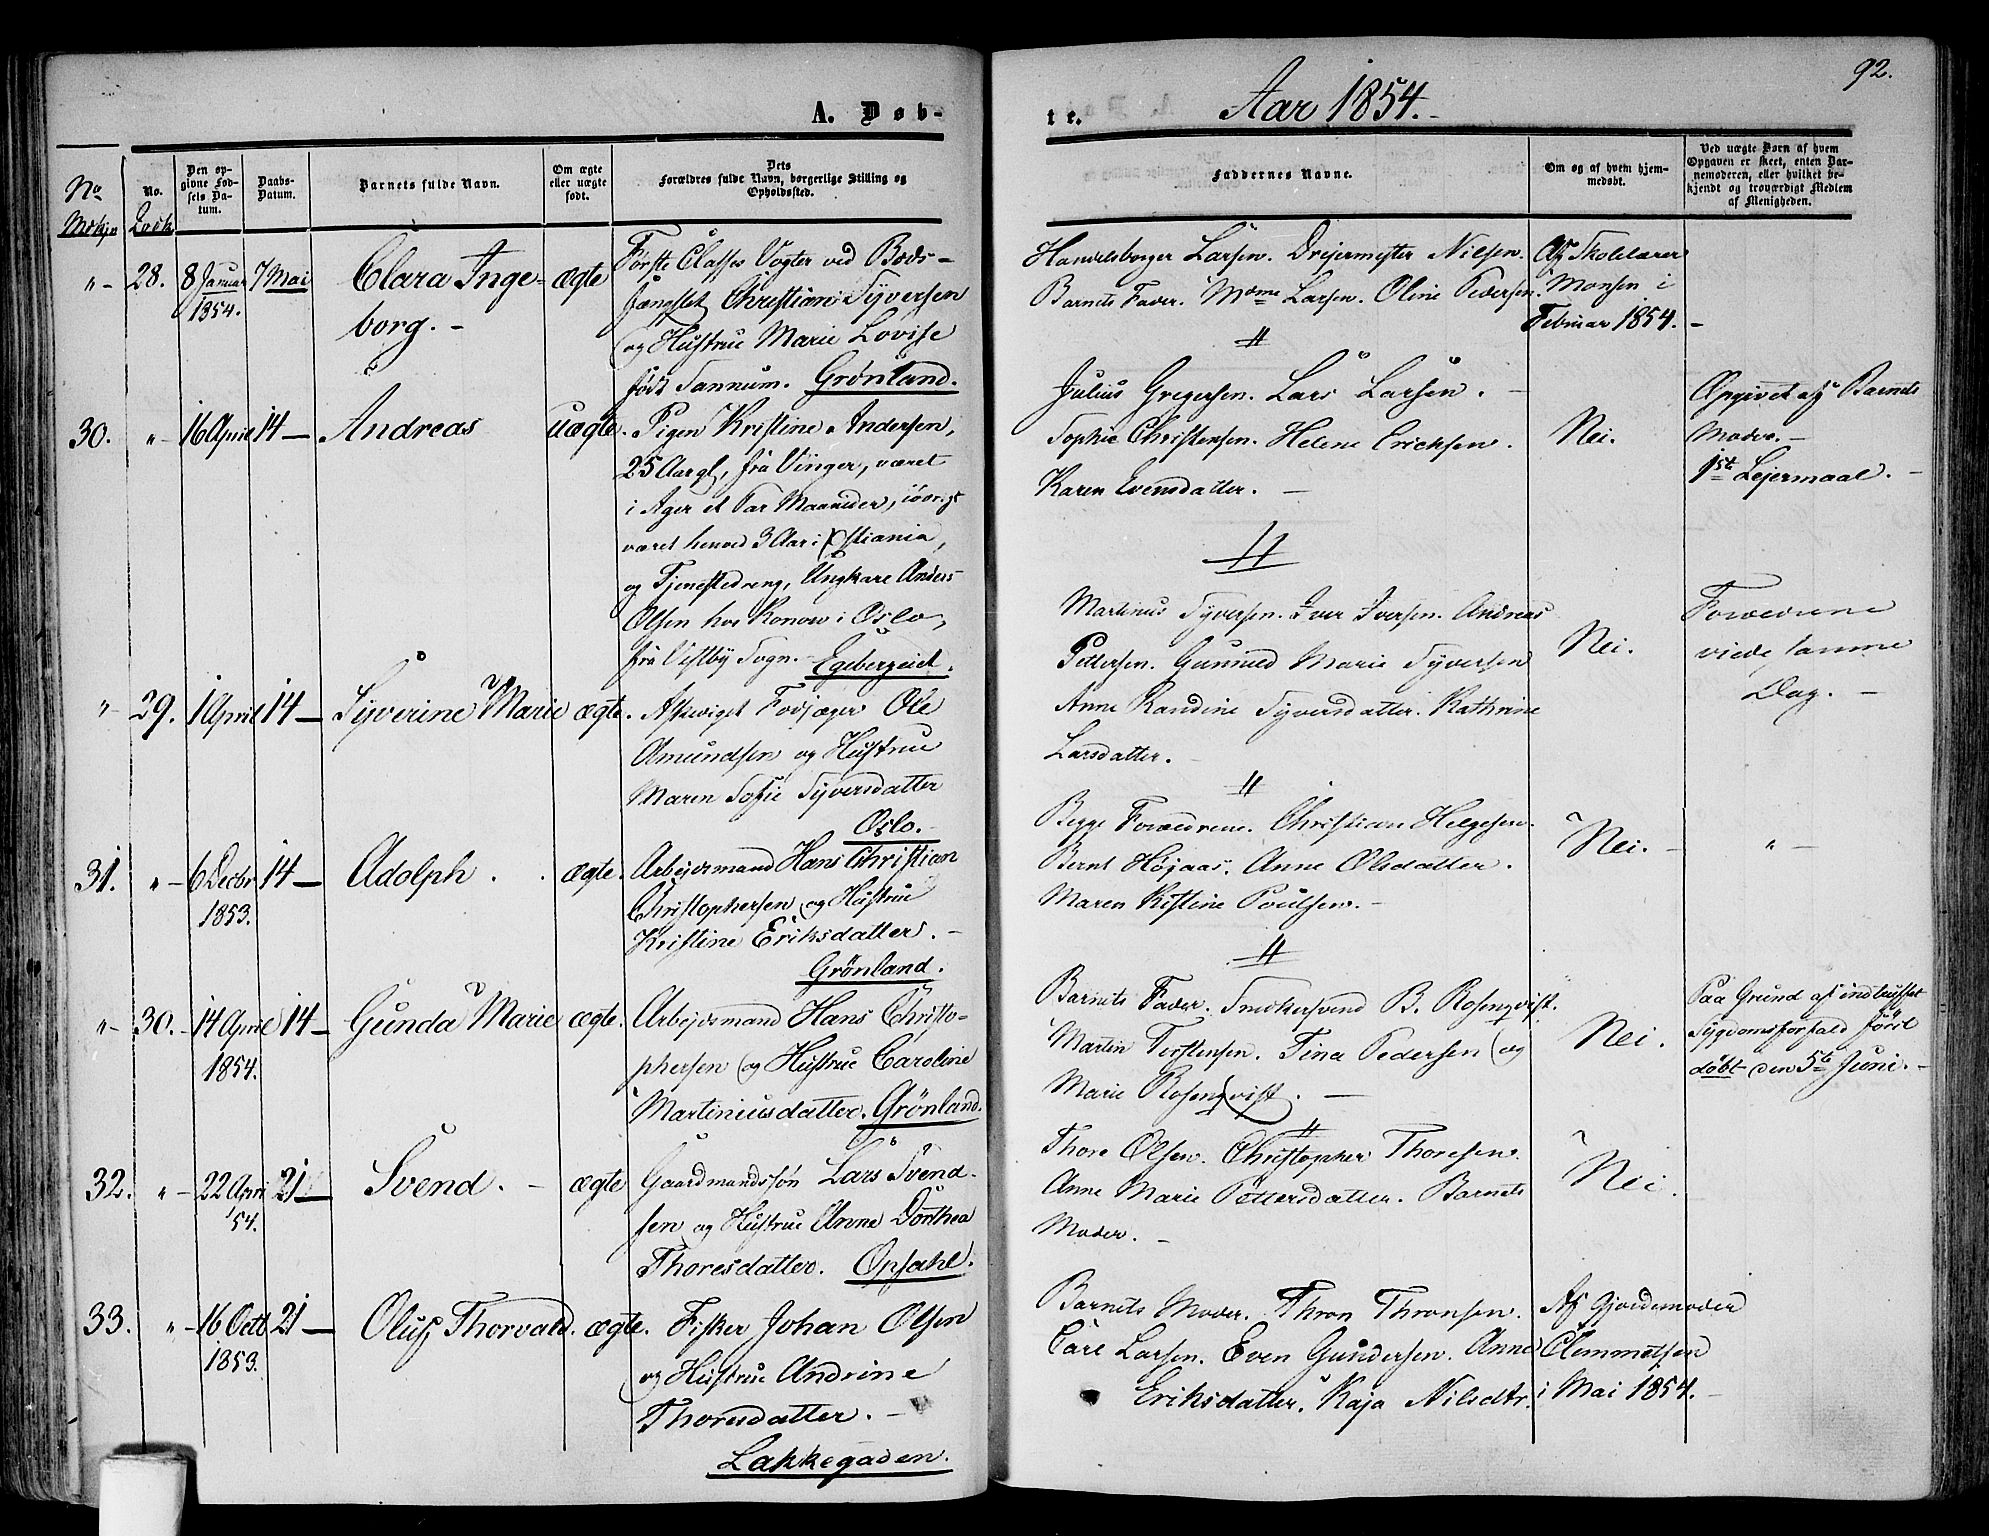 92.
A. Døb-
te.
Aar 1854.-
No
Mskjn
No.
Qvk.
Den op-
givne Fød-
sels Da-
tum.
Daabs-
Datum.
Barnets fulde Navn.
Om ægte
eller uægte
født.
Dets
Forældres fulde Navn, borgerlige Stilling og
Opholdssted.
Faddernes Navne.
Om og af hvem hjem-
medøbt.
Ved uægte Børn af hvem
Opgaven er skeet, enten Bar-
nemoderen, eller hvilket be-
kjendt og troværdigt Medlem
af Menigheden.
"- 28. 8 Januar 7 Mai Clara Inge- ægte Første Classes Vogter ved Bods-
1854. borg. - fængslet Christian Syversen
og Hustrue Marie Lovise
født Tannum. Grønland.
Handelsborger Larsen. Dreiermester Nilsen. Af Skolelærer
Barnets Fader. Mdme Larsen. Oline Pedersen. Monsen i
Februar 1854. -
30. "- 16 April 14 - Andreas uægte. Pigen Kristine Andersen,
25 Aar gl, fra Vinger, været
i Ager et Par Maaneder, iøvrigt
været henved 3 Aar i Xstiania,
og Tjenestedreng, Ungkarl Anders
Olsen hos Konow i Oslo,
fra Vestby Sogn. - Egebergeiet.
Julius Gregersen. Lars Larsen. -
Sophie Christensen. Helene Ericksen. Nei.
Karen Evensdatter. -
Opgivet af Barnets
Moder. -
1ste Lejermaal. -
"- 29. 1 April 14 - Syverine Marie ægte. Afskediget Fodjæger Ole
Amundsen og Hustrue
Maren Sofie Syversdatter
Oslo. -
Martinus Syversen. Iver Iversen. Andreas
Pettersen. Gunnild Marie Syversen Nei.
Anne Randine Syversdatter. Kathrine
Larsdatter. -
Forældrene
viede samme
Dag. -
31. "- 6 Decbr 14 - Adolph. ægte. Arbejdsmand Hans Christian
1853. Christophersen og Hustrue
Kristine Eriksdatter. -
Grønland.
Begge Forældrene. Christian Helgesen.
Bernt Højaas. Anne Olsdatter. Nei. - "-
Maren Kistine Poulsen. -
"- 30. - 14 April 14 - Gunda Marie ægte. Arbejdsmand Hans Christo-
1854. phersen og Hustrue Caroline
Martiniusdatter. Grønland.
Barnets Fader. Snedkersvend B. Rosenqvist.
Martin Torstensen. Tina Pedersen og Nei.
Marie Rosenqvist. -
Paa Grund af indtruffet
Sygdomsforfald først
døbt den 5te Juni. -
32. "- 22 April 21 - Svend. - ægte Gaardmandssøn Lars Svend-
54. sen og Hustrue Anne Dorthea
Thoresdatter. Opsahl.
Thore Olsen. Christopher Thoresen.
Anne Marie Pettersdatter. Barnets Nei.
Moder. -
33. "- 16 Octb 21 - Oluf Thorvald. ægte. Fisker Johan Olsen
1853. og Hustrue Andrine
Thorsdatter. -
Lakkegaden.
Barnets Moder. Thron Thronsen. Af Gjordemoder
Carl Larsen. Even Gundersen. Anne Clemmetsen
Eriksdatter. Kaja Nilsdtr. i Mai 1854. -